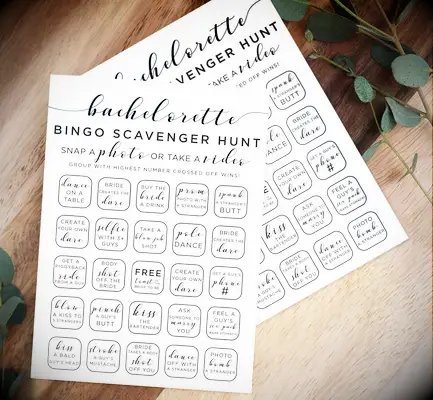 bachelorette
BINGO SCAVENGER HUNT
SNAP A photo OR TAKE A video
GROUP WITH HIGHEST NUMBER CROSSED OFF WINS!
dance
ON A
TABLE
BRIDE
CREATES THE
dare
BUY THE
bride
A DRINK
prom
PHOTO WITH
A STRANGER
spank
A STRANGER'S
BUTT
CREATE
YOUR OWN
dare
selfie
WITH 3+
GUYS
TAKE A
blow job
SHOT
pole
DANCE
BRIDE
CREATES THE
dare
GET A
PIGGYBACK
ride
FROM A GUY
BODY
shot
OFF THE
BRIDE
FREE
toast the
BRIDE TO BE
CREATE
YOUR OWN
dare
GET A GUY'S
phone
#
blow
A KISS TO
5 STRANGERS
pinch
A GUY'S
BUTT
kiss
THE
BARTENDER
ASK
SOMEONE TO
marry
YOU
FEEL A
GUY'S
six pack
kiss
A BALD
GUY'S HEAD
stroke
A GUY'S
MOUSTACHE
BRIDE
TAKES A BODY
shot
OFF YOU
dance
OFF WITH
A STRANGER
PHOTO
bomb
A STRANGER
bachelorette
VENGER HUNT
TAKE A video
ED OFF WINS!
spank
A STRANGER'S
BUTT
BRIDE
CREATES THE
dare
DANCE
GET A GUY'S
phone
#
YOUR OWN
dare
FEEL A
GUY'S
six pack
ASK
SOMEONE TO
marry
YOU
kiss
PHOTO
bomb
A STRANGER
dance
OFF WITH
A STRANGER
BRIDE
TAKES A BODY
shot
OFF YOU